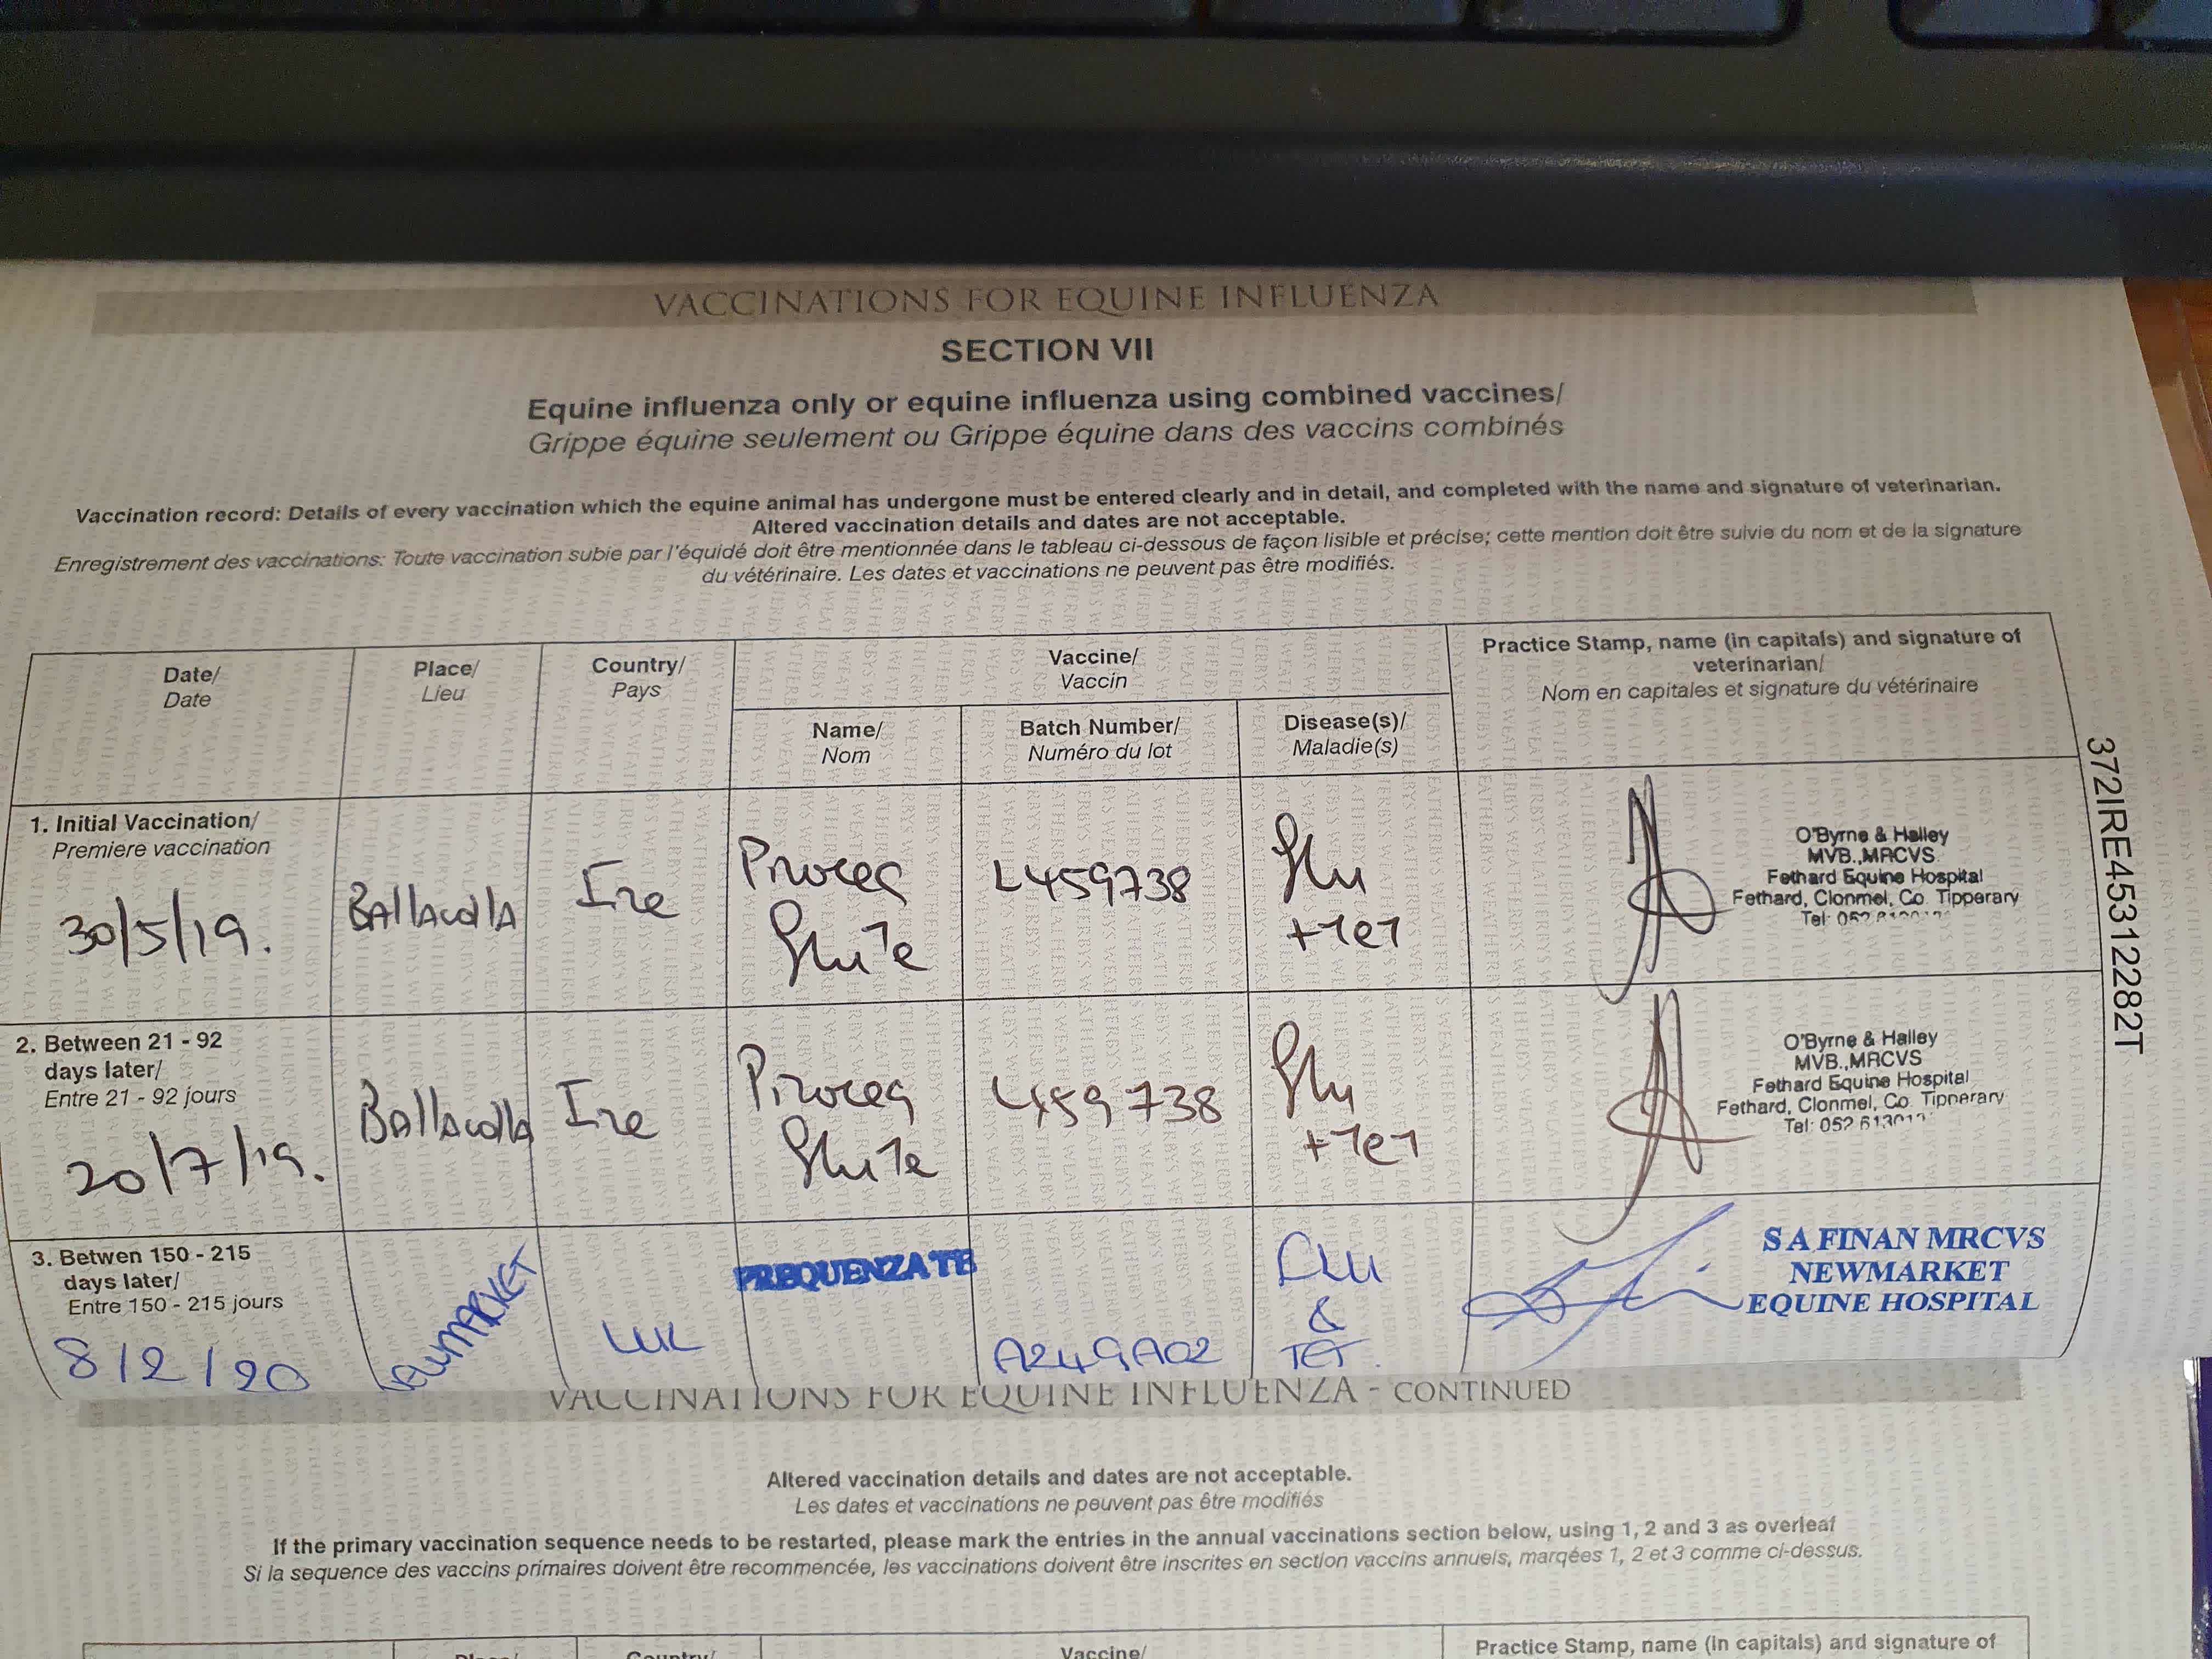 VACCINATIONS FOR EQUINE INFLUENZA
SECTION VII
Equine influenza only or equine influenza using combined vaccines/
Grippe équine seulement ou Grippe équine dans des vaccins combinés
Vaccination record: Details of every vaccination which the equine animal has undergone must be entered clearly and in detail, and completed with the name and signature of veterinarian.
Altered vaccination details and dates are not acceptable.
Enregistrement des vaccinations: Toute vaccination subie par l'équidé doit être mentionnée dans le tableau ci-dessous de façon lisible et précise; cette mention doit être suivie du nom et de la signature
du vétérinaire. Les dates et vaccinations ne peuvent pas être modifiés.
Date/
Date
Place/
Lieu
Country/
Pays
Vaccine/
Vaccin
Name/
Nom
Batch Number/
Numéro du lot
Disease(s)/
Maladie(s)
Practice Stamp, name (in capitals) and signature of
veterinarian/
Nom en capitales et signature du vétérinaire
1. Initial Vaccination/
Premiere vaccination
30/5/19.
Ballacolla
Ire
Proteq
Flu Te
L459738
Flu
+ Tet
O'Byrne & Halley
MVB.,MRCVS
Fethard Equine Hospital
Fethard, Clonmel, Co. Tipperary
Tel: 052
2. Between 21 - 92
days later/
Entre 21 - 92 jours
20/7/19.
Ballacolla
Ire
Proteq
Flu Te
L459738
Flu
+ Tet
O'Byrne & Halley
MVB.,MRCVS
Fethard Equine Hospital
Fethard, Clonmel, Co. Tipperary
Tel: 052
3. Betwen 150 - 215
days later/
Entre 150 - 215 jours
8/2/20
NEWMARKET
UK
PREQUENZA TE
A249A02
FLU
&
TET.
S A FINAN MRCVS
NEWMARKET
EQUINE HOSPITAL
372IRE45312282T
VACCINATIONS FOR EQUINE INFLUENZA - CONTINUED
Altered vaccination details and dates are not acceptable.
Les dates et vaccinations ne peuvent pas être modifiés
If the primary vaccination sequence needs to be restarted, please mark the entries in the annual vaccinations section below, using 1, 2 and 3 as overleaf
Si la sequence des vaccins primaires doivent être recommencée, les vaccinations doivent être inscrites en section vaccins annuels, marqées 1, 2 et 3 comme ci-dessus.
Place/
Country/
Vaccine/
Practice Stamp, name (in capitals) and signature of